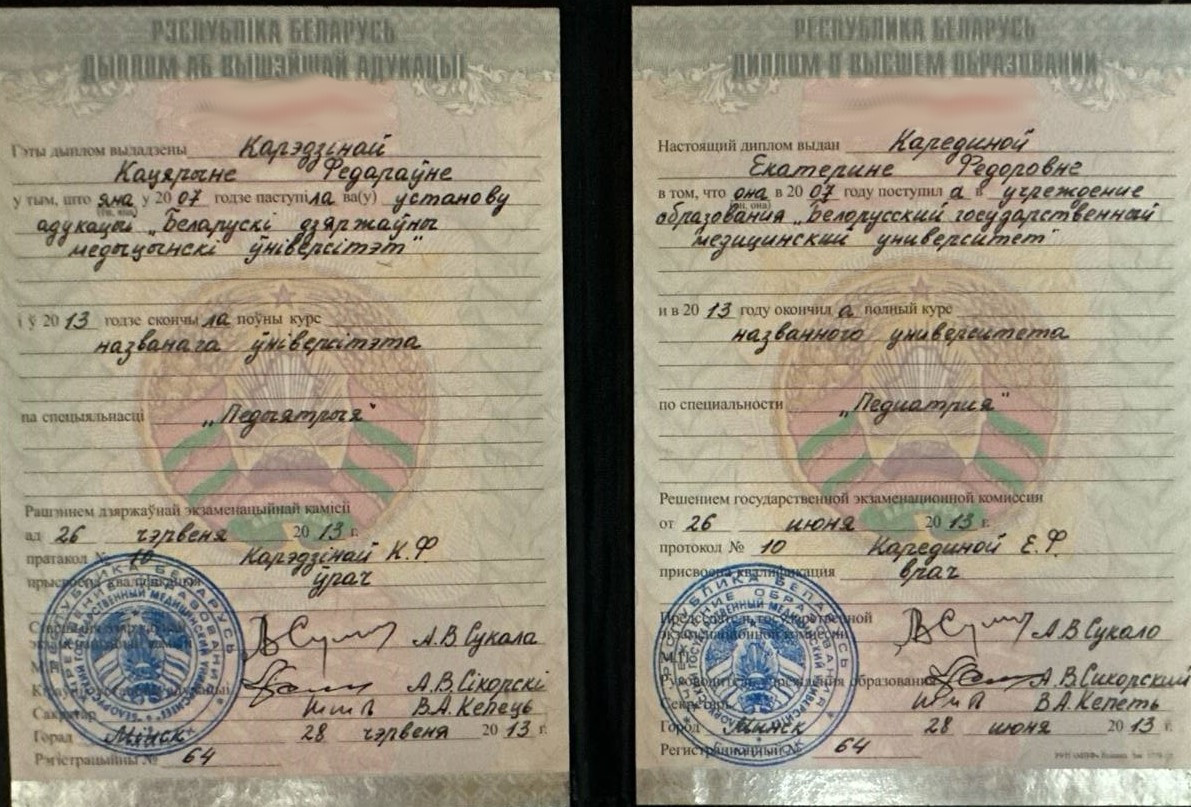 РЭСПУБЛІКА БЕЛАРУСЬ
ДЫПЛОМ АБ ВЫШЭЙШАЙ АДУКАЦЫІ
Гэты дыплом выдадзены Карэдзінай
Кацярыне Федараўне
у тым, што яна у 2007 годзе паступіла ва(у) установу
(ён, яна)
адукацыі „Беларускі дзяржаўны
медыцынскі ўніверсітэт"
і ў 2013 годзе скончыла поўны курс
названага ўніверсітэта
па спецыяльнасці „Педыятрыя"
Рашэннем дзяржаўнай экзаменацыйнай камісіі
ад 26 чэрвеня 2013 г.
пратакол № 10 Карэдзінай К.Ф
прысвоена кваліфікацыя ўрач
А.В.Сукала
А.В.Сікорскі
Сакратар В.А.Кепець
Горад Мінск 28 чэрвеня 2013 г.
Рэгістрацыйны № 64
РЕСПУБЛИКА БЕЛАРУСЬ
ДИПЛОМ О ВЫСШЕМ ОБРАЗОВАНИИ
Настоящий диплом выдан Карединой
Екатерине Федоровне
в том, что она в 2007 году поступила в учреждение
(он, она)
образования „Белорусский государственный
медицинский университет"
и в 2013 году окончила полный курс
названного университета
по специальности „Педиатрия"
Решением государственной экзаменационной комиссии
от 26 июня 2013 г.
протокол № 10 Карединой Е.Ф.
присвоена квалификация врач
Председатель государственной
экзаменационной комиссии А.В.Сукало
М.П.
Руководитель учреждения образования А.В.Сикорский
Секретарь В.А.Кепеть
Город Минск 28 июня 2013 г.
Регистрационный № 64